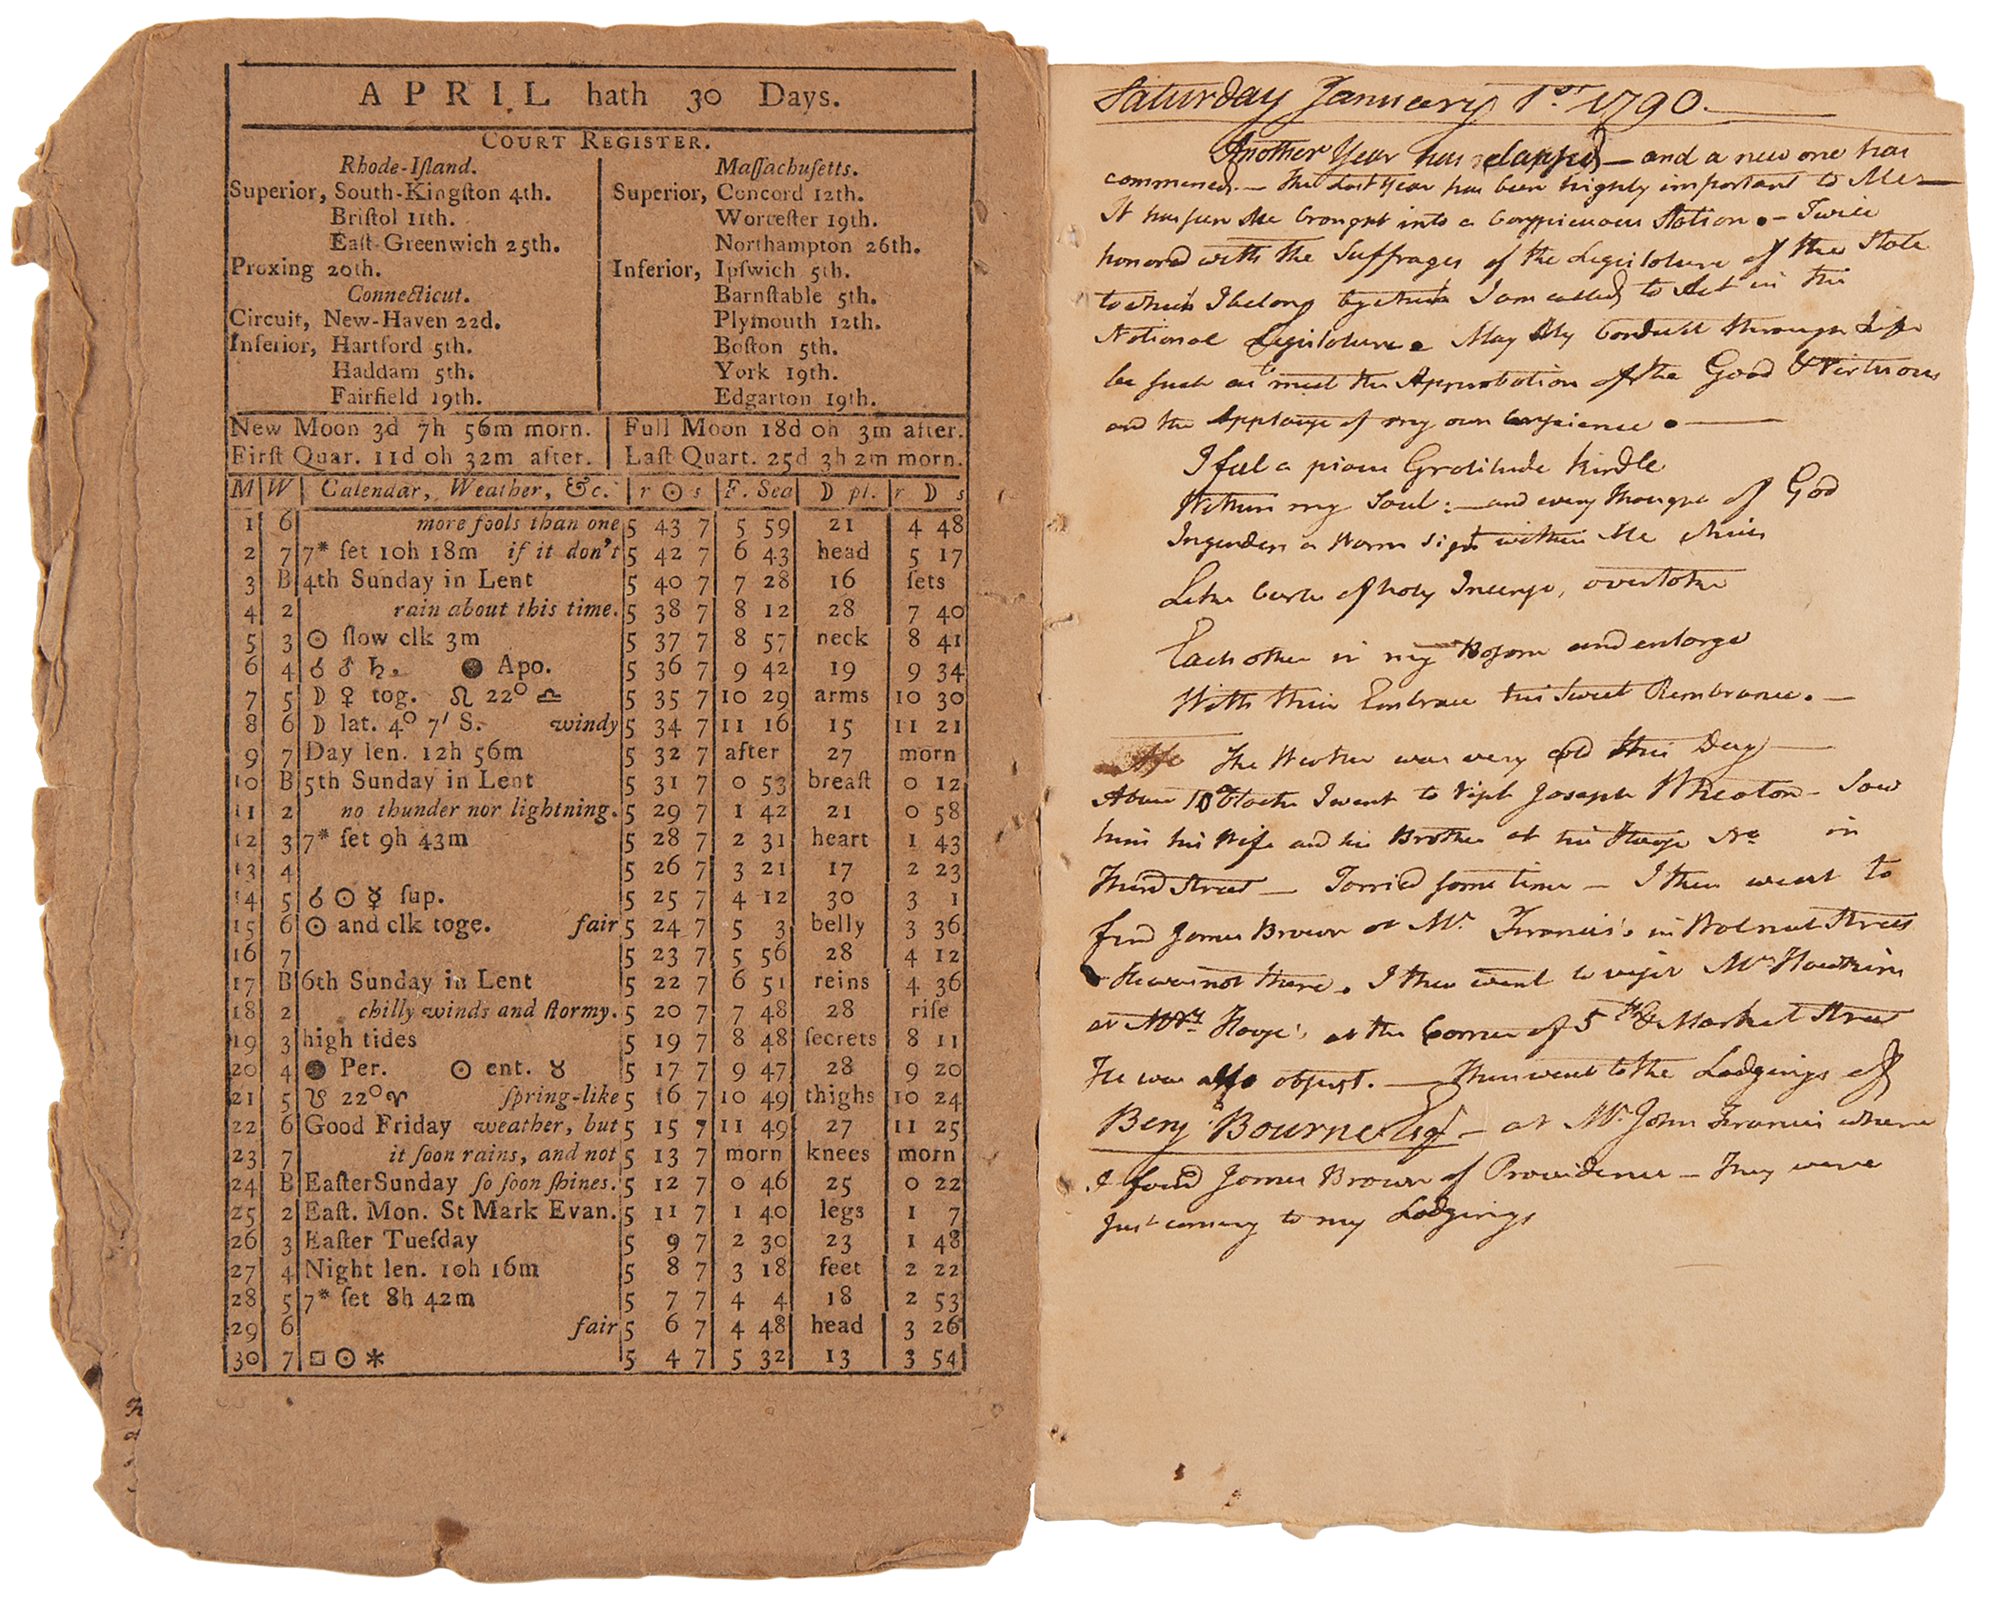 APRIL hath 30 Days.
COURT REGISTER.
Rhode-Iſland.
Superior, South-Kingſton 4th.
Briſtol 11th.
Eaſt-Greenwich 25th.
Proxing 20th.
Connecticut.
Circuit, New-Haven 22d.
Inferior, Hartford 5th.
Haddam 5th.
Fairfield 19th.
Maſſachuſetts.
Superior, Concord 12th.
Worceſter 19th.
Northampton 26th.
Inferior, Ipſwich 5th.
Barnſtable 5th.
Plymouth 12th.
Boſton 5th.
York 19th.
Edgarton 19th.
New Moon 3d 7h 56m morn. | Full Moon 18d 0h 3m after.
Firſt Quar. 11d 0h 32m after. | Laſt Quart. 25d 3h 2m morn.
M | W | Calendar, Weather, &c. | r ☉ s | F. Sea | ☽ pl. | r ☽ s
1 6 more fools than one 5 43 7 5 59 21 4 48
2 7 7* ſet 10h 18m if it don't 5 42 7 6 43 head 5 17
3 B 4th Sunday in Lent 5 40 7 7 28 16 ſets
4 2 rain about this time. 5 38 7 8 12 28 7 40
5 3 ☉ ſlow clk 3m 5 37 7 8 57 neck 8 41
6 4 ☌ ♂ ♄. ● Apo. 5 36 7 9 42 19 9 34
7 5 ☽ ♀ tog. ☊ 22° ♎ 5 35 7 10 29 arms 10 30
8 6 ☽ lat. 4° 7′ S. windy 5 34 7 11 16 15 11 21
9 7 Day len. 12h 56m 5 32 7 after 27 morn
10 B 5th Sunday in Lent 5 31 7 0 53 breaſt 0 12
11 2 no thunder nor lightning. 5 29 7 1 42 21 0 58
12 3 7* ſet 9h 43m 5 28 7 2 31 heart 1 43
13 4 5 26 7 3 21 17 2 23
14 5 ☌ ☉ ☿ ſup. 5 25 7 4 12 30 3 1
15 6 ☉ and clk toge. fair 5 24 7 5 3 belly 3 36
16 7 5 23 7 5 56 28 4 12
17 B 6th Sunday in Lent 5 22 7 6 51 reins 4 36
18 2 chilly winds and ſtormy. 5 20 7 7 48 28 riſe
19 3 high tides 5 19 7 8 48 ſecrets 8 11
20 4 ● Per. ☉ ent. ♉ 5 17 7 9 47 28 9 20
21 5 ☋ 22° ♈ ſpring-like 5 16 7 10 49 thighs 10 24
22 6 Good Friday weather, but 5 15 7 11 49 27 11 25
23 7 it ſoon rains, and not 5 13 7 morn knees morn
24 B EaſterSunday ſo ſoon ſhines. 5 12 7 0 46 25 0 22
25 2 Eaſt. Mon. St Mark Evan. 5 11 7 1 40 legs 1 7
26 3 Eaſter Tueſday 5 9 7 2 30 23 1 48
27 4 Night len. 10h 16m 5 8 7 3 18 feet 2 22
28 5 7* ſet 8h 42m 5 7 7 4 4 18 2 53
29 6 fair 5 6 7 4 48 head 3 26
30 7 □ ☉ * 5 4 7 5 32 13 3 54
Saturday January 1st 1790.
Another Year has elapsed — and a new one has
commenced. — The Last Year has been highly important to Me —
It has seen Me brought into a Conspicuous Station. — Twice
honored with the Suffrages of the Legislature of the State
to which I belong by which I am called to Act in the
National Legislature. May My Conduct through Life
be such as meet the Approbation of the Good & Virtuous
and the Applause of my own Conscience. —
I feel a pious Gratitude kindle
Within my Soul: — and every thought of God
Ingenders a Warm Sigh within Me which
Like Curls of holy Incense, overtake
Each other in my Bosom and enlarge
With their Embrace his Sweet Rembrance. —
The Weather was very cold this Day —
About 10 oClock I went to visit Joseph Wheaton — Saw
him his Wife and his Brother at his House No in
Third Street — Tarried some time — I then went to
find James Brown at Mr. Francis's in Walnut Street
He was not there. I then went to visit Mr Hawkins
at Mrs House's at the Corner of 5th & Market Street
He was also absent. — Then went to the Lodgings of
Benj Bourne Esqr — at Mr. John Francis where
I found James Brown of Providence — They were
Just coming to my Lodgings